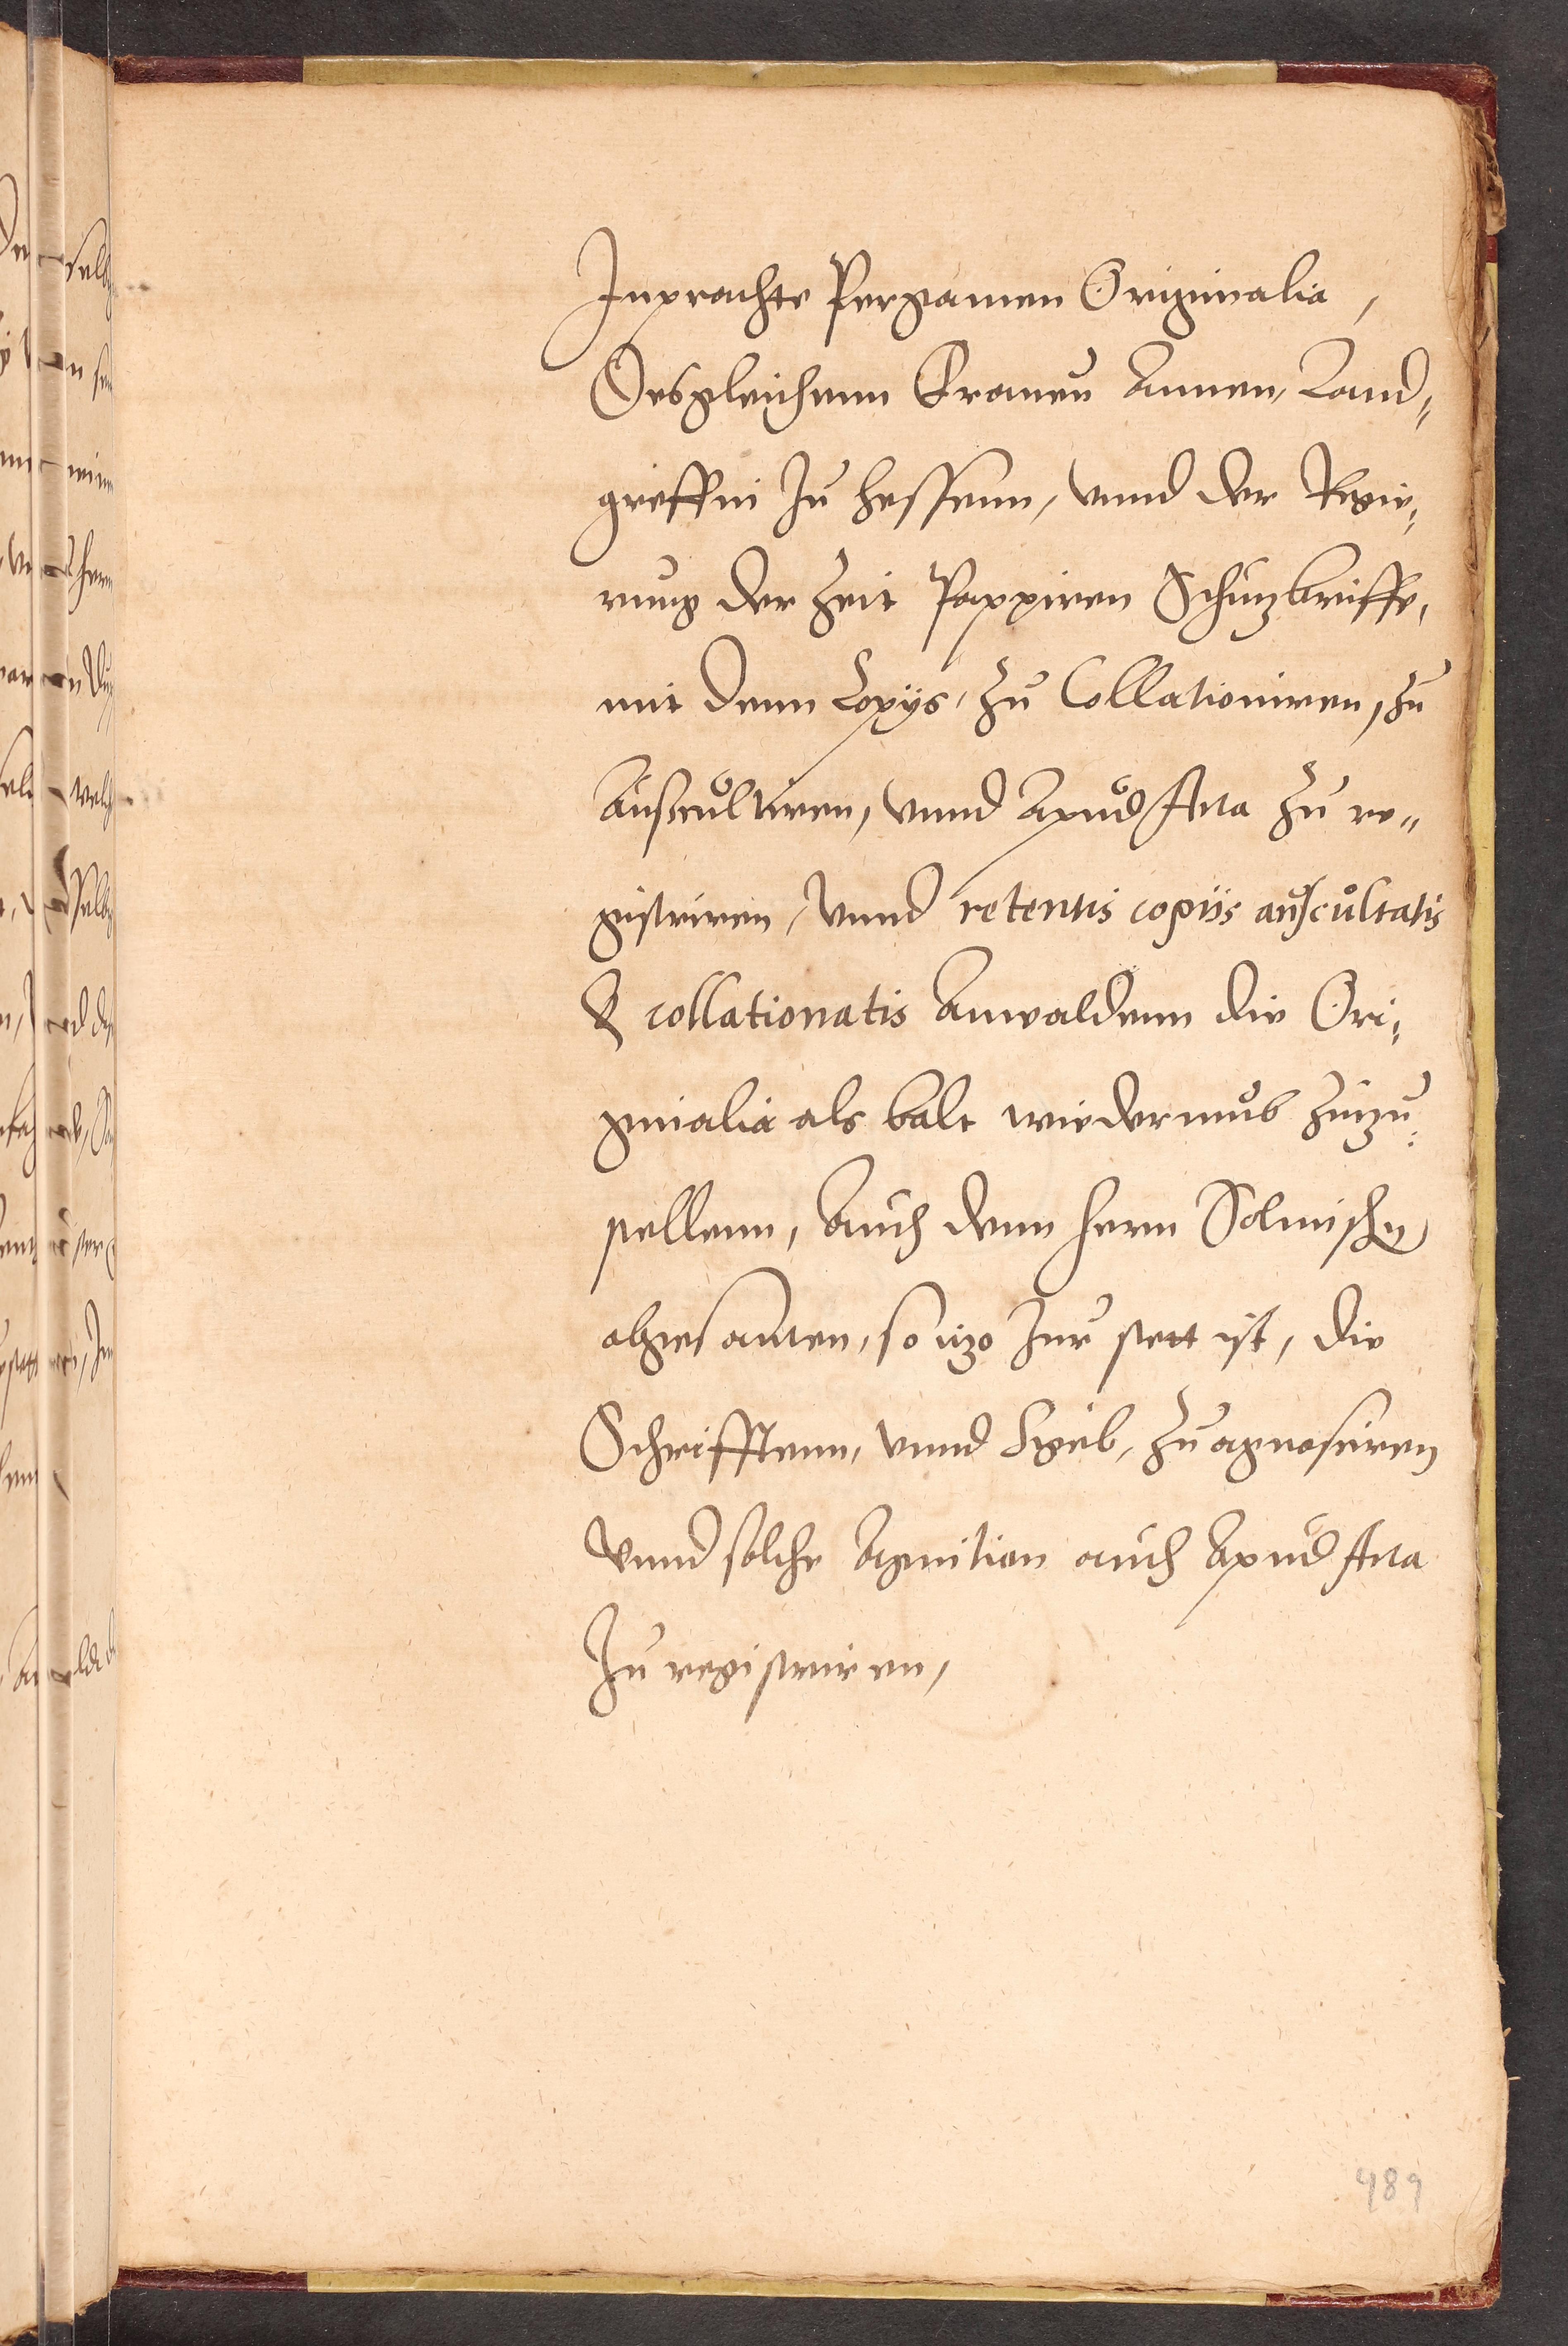 Inprachte Pergamen Originalia,
Desgleichenn Frawen Annen, Land„
greffin zu hessenn, vnnd der Regie„
rung der Zeit Pappiren Schutzbrieffe,
mit denn Copÿs, zu Collationiren, zu
Auscultiren, vnnd Apud Acta zu re„
gistriren, vnnd retentis copiis auscultatis
& collationatis Anwaldenn die Ori„
ginalia als balt wiedermub zuzu„
stellenn, Auch denn herrn Solmischen
abgesanten, so itzo zur stett ist, die
Schrifftenn, vnnd Sigel, zu agnosciren
vnnd solche Agnition auch Apud Acta
zu registriren,
489